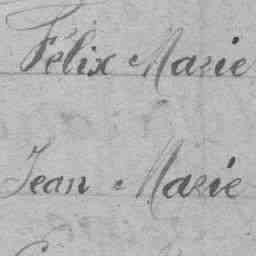 Félix Marie
Jean Marie